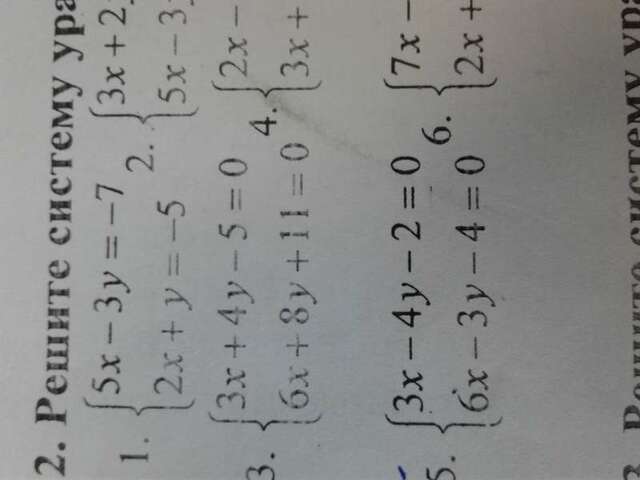 2. Решите систему ура
1. 5x − 3y = −7
2x + y = −5
2. 3x + 2
5x − 3
3. 3x + 4y − 5 = 0
6x + 8y + 11 = 0
4. 2x −
3x +
5. 3x − 4y − 2 = 0
6x − 3y − 4 = 0
6. 7x −
2x +
3. Решите систему ура